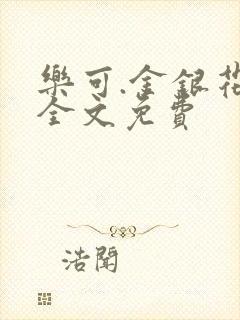 樂可.金銀花
全文免費
浩聞